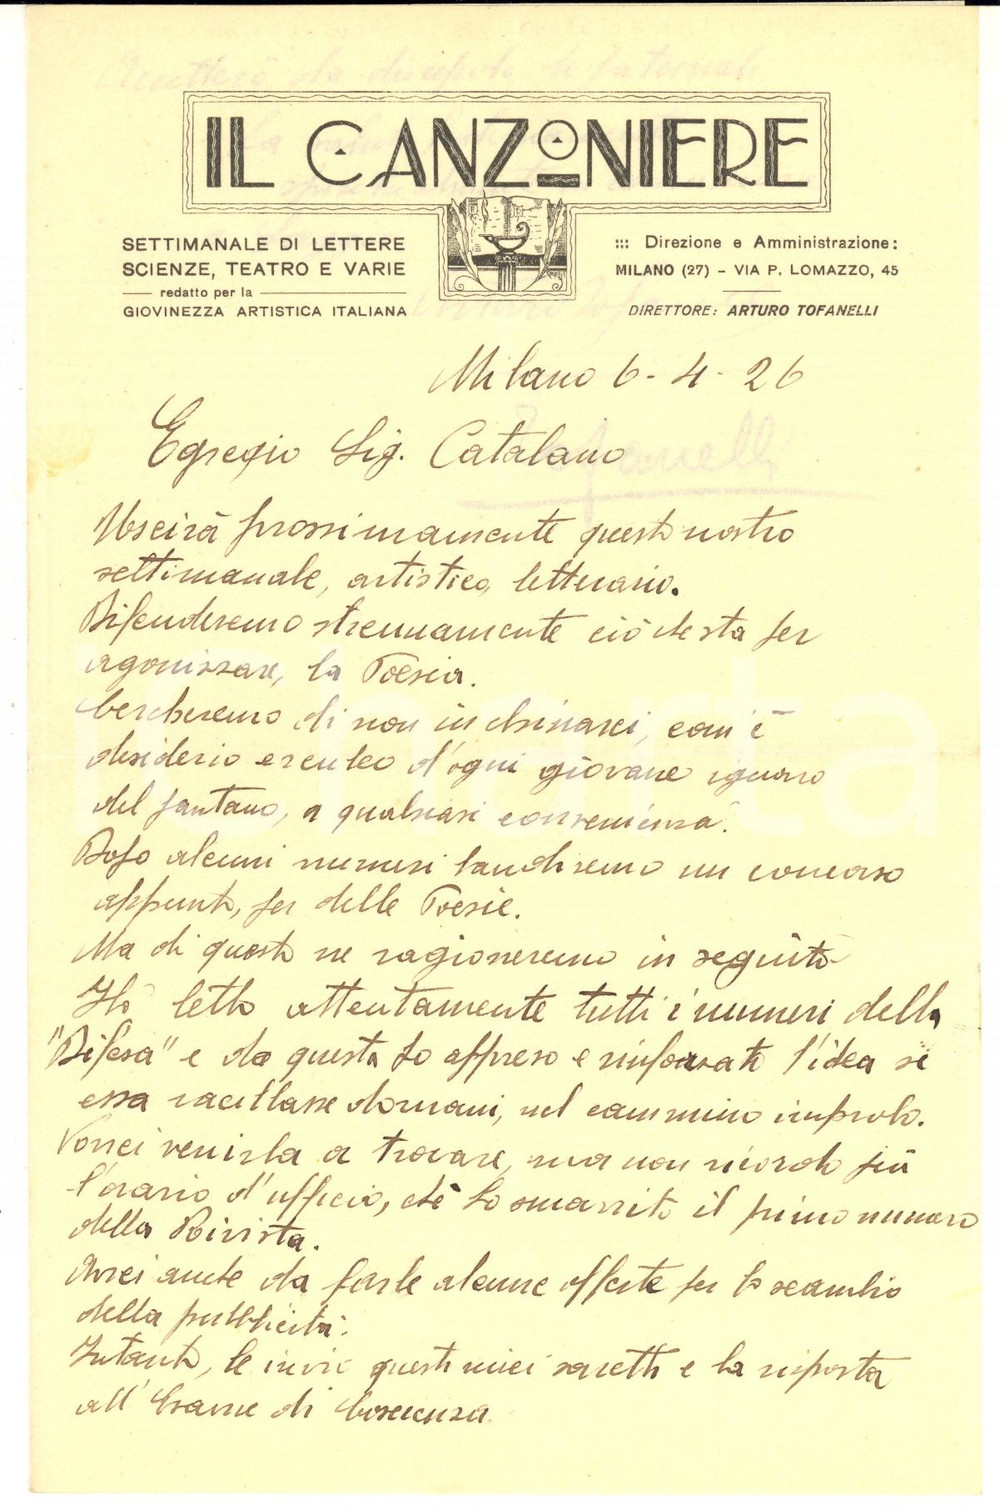 IL CANZONIERE
SETTIMANALE DI LETTERE
SCIENZE, TEATRO E VARIE
redatto per la
GIOVINEZZA ARTISTICA ITALIANA
::: Direzione e Amministrazione:
MILANO (27) - VIA P. LOMAZZO, 45
DIRETTORE: ARTURO TOFANELLI
Milano 6-4-26
Egregio Sig. Catalano
Uscirà prossimamente questo nostro
settimanale, artistico, letterario.
Difenderemo strenuamente ciò che sta per
agonizzare, la Poesia.
Cercheremo di non inchinarci, com'è
desiderio erculeo d'ogni giovane ignaro
del pantano, a qualsiasi convenienza.
Dopo alcuni numeri bandiremo un concorso
appunto, per delle Poesie.
Ma di questo ne ragioneremo in seguito
Ho letto attentamente tutti i numeri della
"Difesa" e da questa ho appreso e rinforzato l'idea se
essa vacillasse domani, nel cammino improbo.
Vorrei venirla a trovare, ma non ricordo più
l'orario d'ufficio, chè ho smarrito il primo numero
della Rivista.
Avrei anche da farle alcune offerte per lo scambio
della pubblicità.
Intanto, le invio questi miei sonetti e la risposta
all'Esame di Coscienza